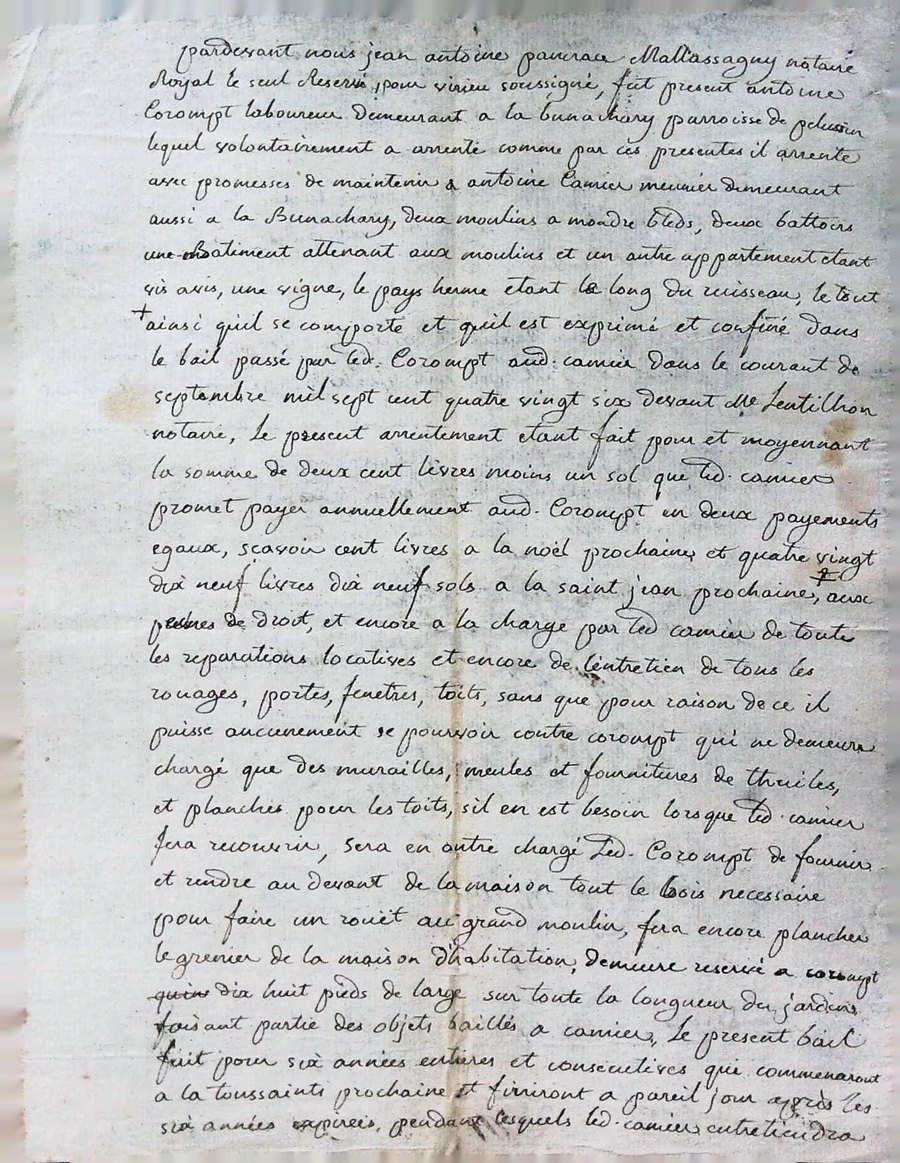 pardevant nous jean antoine pancrace Mallassagny notaire
Royal le seul Reservé pour virieu soussigné, fut present antoine
Corompt laboureur demeurant a la bunachary parroisse de pelussin
lequel volontairement a arrenté comme par ces presentes il arrente
avec promesses de maintenir a antoine Camier meunier demeurant
aussi a la Bunachary, deux moulins a moudre bleds, deux battoirs
une batiment attenant aux moulins et un autre appartement etant
vis avis, une vigne, le pays herme etant le long du ruisseau, le tout
+ ainsi quil se comporte et quil est exprimé et confiné dans
le bail passé par led. Corompt aud. camier dans le courant de
septembre mil sept cent quatre vingt six devant Me Lentillon
notaire, Le present arrentement etant fait pour et moyennant
la somme de deux cent livres moins un sol que led. camier
promet payer annuellement aud. Corompt en deux payements
egaux, scavoir cent livres a la noël prochaine, et quatre vingt
dix neuf livres dix neuf sols a la saint jean prochaine, aux
peines de droit, et encore a la charge par led camier de toute
les reparations locatives et encore de l'entretien de tous les
rouages, portes, fenetres, toits, sans que pour raison de ce il
puisse aucunement se pourvoir contre corompt qui ne demeure
chargé que des murailles, meules et fournitures de thuiles,
et planches pour les toits, sil en est besoin lorsque led. camier
fera recouvrir, Sera en outre chargé Led. Corompt de fournir
et rendre au devant de la maison tout le bois necessaire
pour faire un rouët au grand moulin, fera encore plancher
le grenier de la maison d'habitation, demeure reservé a corompt
quin dix huit pieds de large sur toute la longueur du jardin
faisant partie des objets baillés a camier, Le present bail
fait pour six années entieres et consecutives qui commenceront
a la toussaints prochaine et finiront a pareil jour apprès les
six années expirées, pendant lesquels led. camier entretiendra